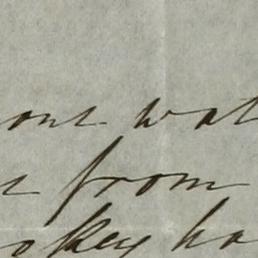 out wat
from
okey ha